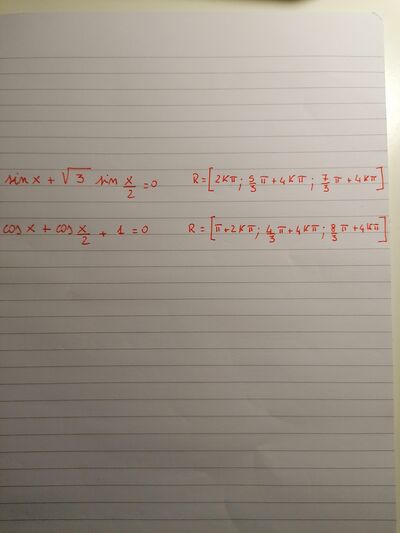 sin x + √3 sin x/2 = 0 R = [2Kπ ; 5/3 π + 4Kπ ; 7/3 π + 4Kπ]
cos x + cos x/2 + 1 = 0 R = [π + 2Kπ ; 4/3 π + 4Kπ ; 8/3 π + 4Kπ]